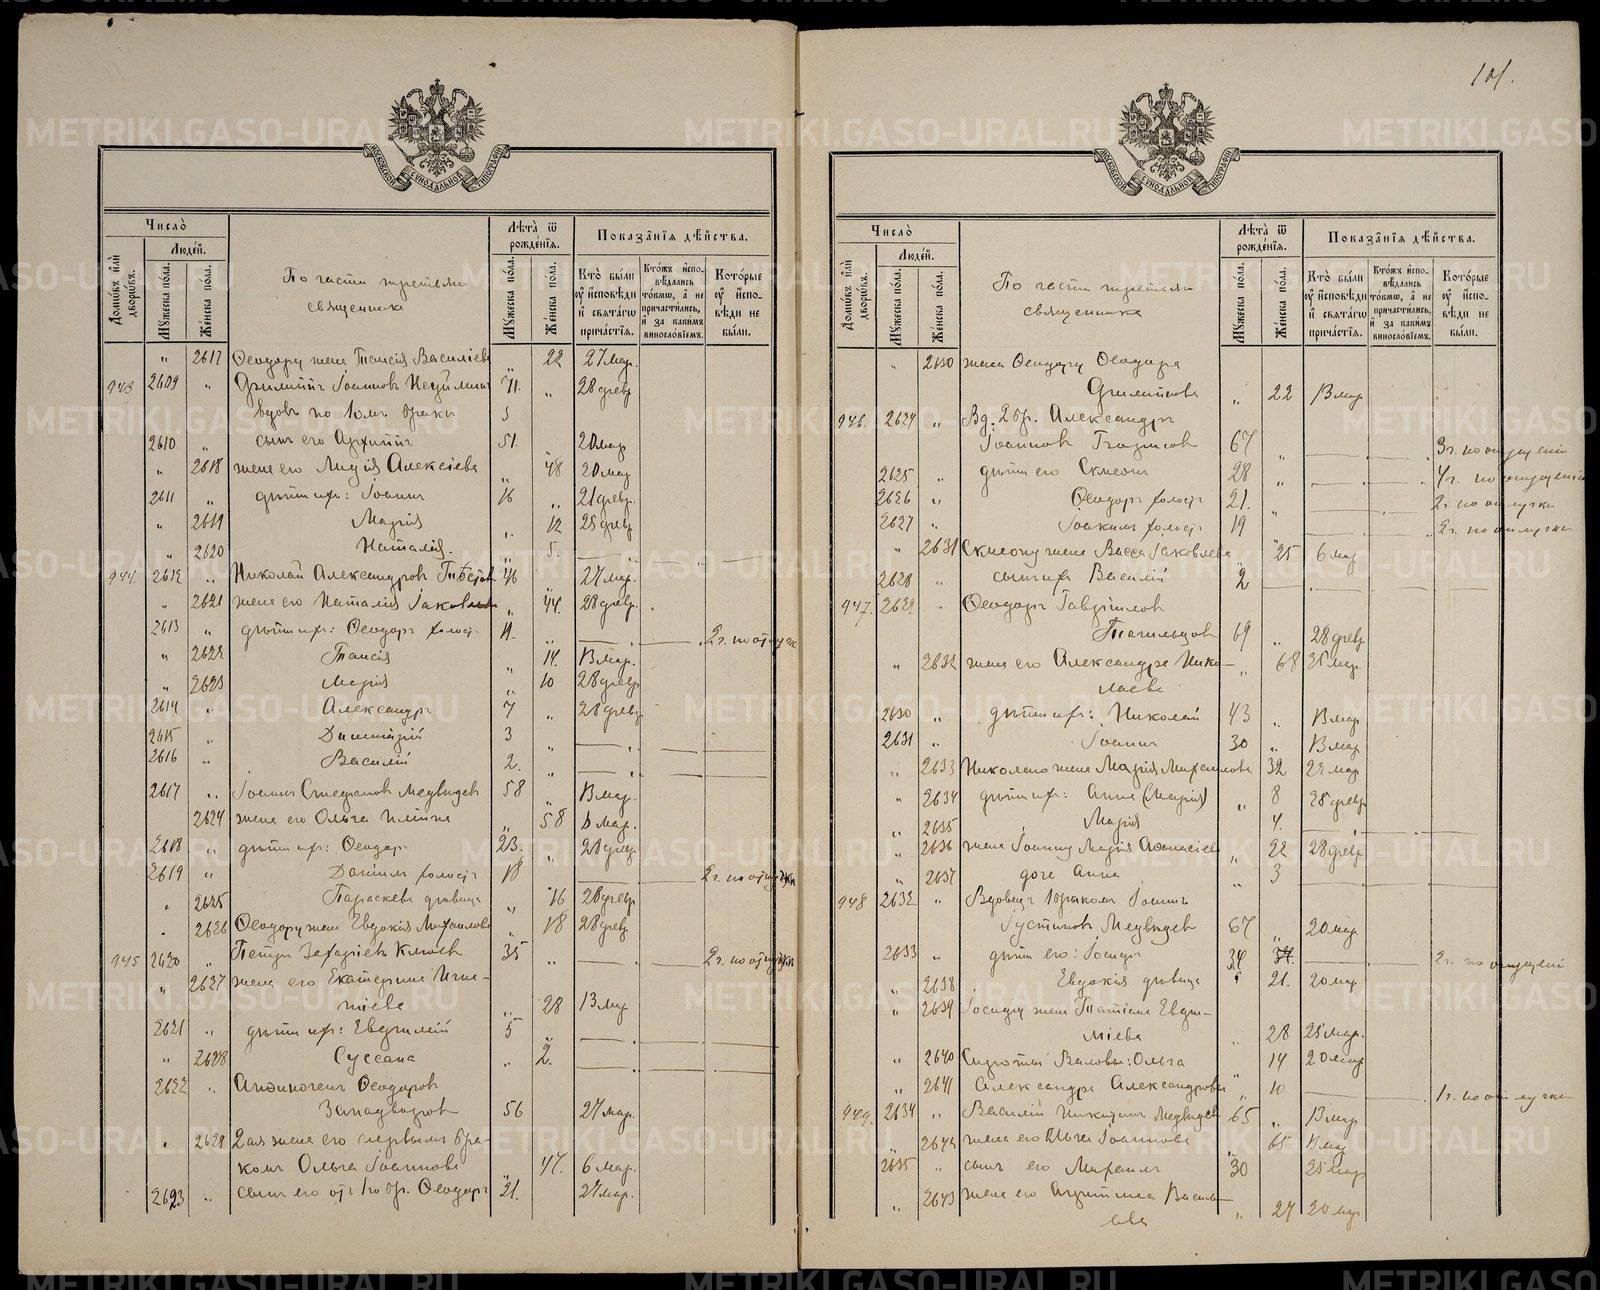 101.
МОСКОВСКОЙ СѴНОДАЛЬНОЙ ТИПОГРАФІИ
Число̀
Домѡ́въ и҆лѝ дворѡ́въ.
Люде́й.
Мꙋ́жеска по́ла.
Же́нска по́ла.
По части третьяго
священника
Лѣ́та ѿ рожде́нїѧ.
Мꙋ́жеска по́ла.
Же́нска по́ла.
Показа̑нїѧ дѣ́йства.
Кто̀ бы́ли ᲂу҆ и҆сповѣди и҆ свѧта́гѡ прича́стїѧ.
Кто́жъ и҆сповѣдались то́кмѡ, а҆ не причасти́лись, и҆ за какимъ винословїемъ.
Кото́рые ᲂу҆ и҆сповѣди не бы́ли.
" 2617 Ѳеодору жена Таисія Василіева " 22 27 мар.
943 2609 " Филиппъ Іоанновъ 71. " 28 февр
вдовъ по 1омъ бракѣ
2610 " сынъ его Архиппъ 51. 20 мар
" 2618 жена его Лидія Алексіева " 48 20 мар
2611 " дѣти ихъ: Іоаннъ 16 " 21 февр.
" 2619 Марія " 12 25 февр
" 2620 Наталія. " 5.
944. 2612 " Николай Александровъ 46 27 мар.
" 2621 жена его Наталія Іаковлева " 44. 28 февр.
2613 " дѣти ихъ: Ѳеодоръ холост " 2 г. по отлучк
" 2622 Таисія " 14. 13 мар.
" 2623 Марія " 10 28 февр
2614 " Александръ 7 " 28 февр
2615 " Димитрій 3
2616 " Василій 2.
2617 " Іоаннъ Стефановъ Медвѣдевъ 58 " 13 мар.
" 2624 жена его Ольга Ильина " 58 мар.
2618 " дѣти ихъ: Ѳеодоръ 23. " 28 февр
2619 " Даніилъ холост 18 2 г. по отлучки
" 2625 Параскева дѣвица " 16 28 февр
" 2626 Ѳеодору жена Евдокія Михаилова " 18 28 февр
945 2620 " Петръ Захаріевъ Клюевъ 35 " 2 г. по отлучки
" 2627 жена его Екатерина Игна-
тіева " 28 13 мар
2621 " дѣти ихъ: Евфимій 5
" 2628 Суссана " 2.
2622 " Анѳиногенъ Ѳеодоровъ
Западваровъ 56 27 мар.
" 2629 2ая жена его первымъ бра-
комъ Ольга Іоаннова " 47. 6 мар.
2623 " сынъ его отъ 1го бр. Ѳеодоръ 21. 27 мар.
МОСКОВСКОЙ СѴНОДАЛЬНОЙ ТИПОГРАФІИ
Число̀
Домѡ́въ и҆лѝ дворѡ́въ.
Люде́й.
Мꙋ́жеска по́ла.
Же́нска по́ла.
По части третьяго
священника
Лѣ́та ѿ рожде́нїѧ.
Мꙋ́жеска по́ла.
Же́нска по́ла.
Показа̑нїѧ дѣ́йства.
Кто̀ бы́ли ᲂу҆ и҆сповѣди и҆ свѧта́гѡ прича́стїѧ.
Кто́жъ и҆сповѣдались то́кмѡ, а҆ не причасти́лись, и҆ за какимъ винословїемъ.
Кото́рые ᲂу҆ и҆сповѣди не бы́ли.
" 2630 жена Ѳеодору Ѳеодора
Филиппова " 22 13 мар
946. 2624 " Вд. 2 бр. Александръ
Іоанновъ 67 " 3 г. по опущенію
2625 " дѣти его Симеонъ 28 " 4 г. по опущенію
2626 " Ѳеодоръ холост 21. " 2 г. по отлучки
2627 " Іоакимъ холост 19 2 г. по отлучки
" 2631 Симеону жена Васса Іаковлева " 25 6 мар
2628 " сынъ ихъ Василій 2
947. 2629 " Ѳеодоръ Гавріиловъ
Тагильцовъ 69 " 28 февр
" 2632 жена его Александра Нико-
лаева " 68 25 мар.
2630 " дѣти ихъ: Николай 43 " 13 мар
2631 " Іоаннъ 30 " 13 мар
" 2633 Николаю жена Марія Михаилова 32 22 мар
" 2634 дѣти ихъ: Анна (Марія) " 8 28 февр
" 2635 Марія 4.
" 2636 жена Іоанну Марія Аѳанасіева " 22 28 февр
" 2637 дочь Анна " 3
948 2632 " Вдовецъ 1 бракомъ Іоаннъ
Іустиновъ Медвѣдевъ 67 " 20 мар
2633 " дѣти его: Іосифъ 34 2 г. по опущенію
" 2638 Евдокія дѣвица " 21. 20 мар
" 2639 Іосифу жена Татіана Евфи-
міева " 28 25 мар.
" 2640 Сироты Валовы: Ольга 14 20 мар
" 2641 Александра Александровы " 10 1 г. по отлучки
949. 2634 " Василій Никитинъ Медвѣдевъ 65 " 13 мар
" 2642 жена его Ольга Іоаннова " 65 13 мар
2635 " сынъ его Михаилъ 30 25 мар
" 2643 жена его Василь-
ева " 27 20 мар
METRIKI.GASO-URAL.RU